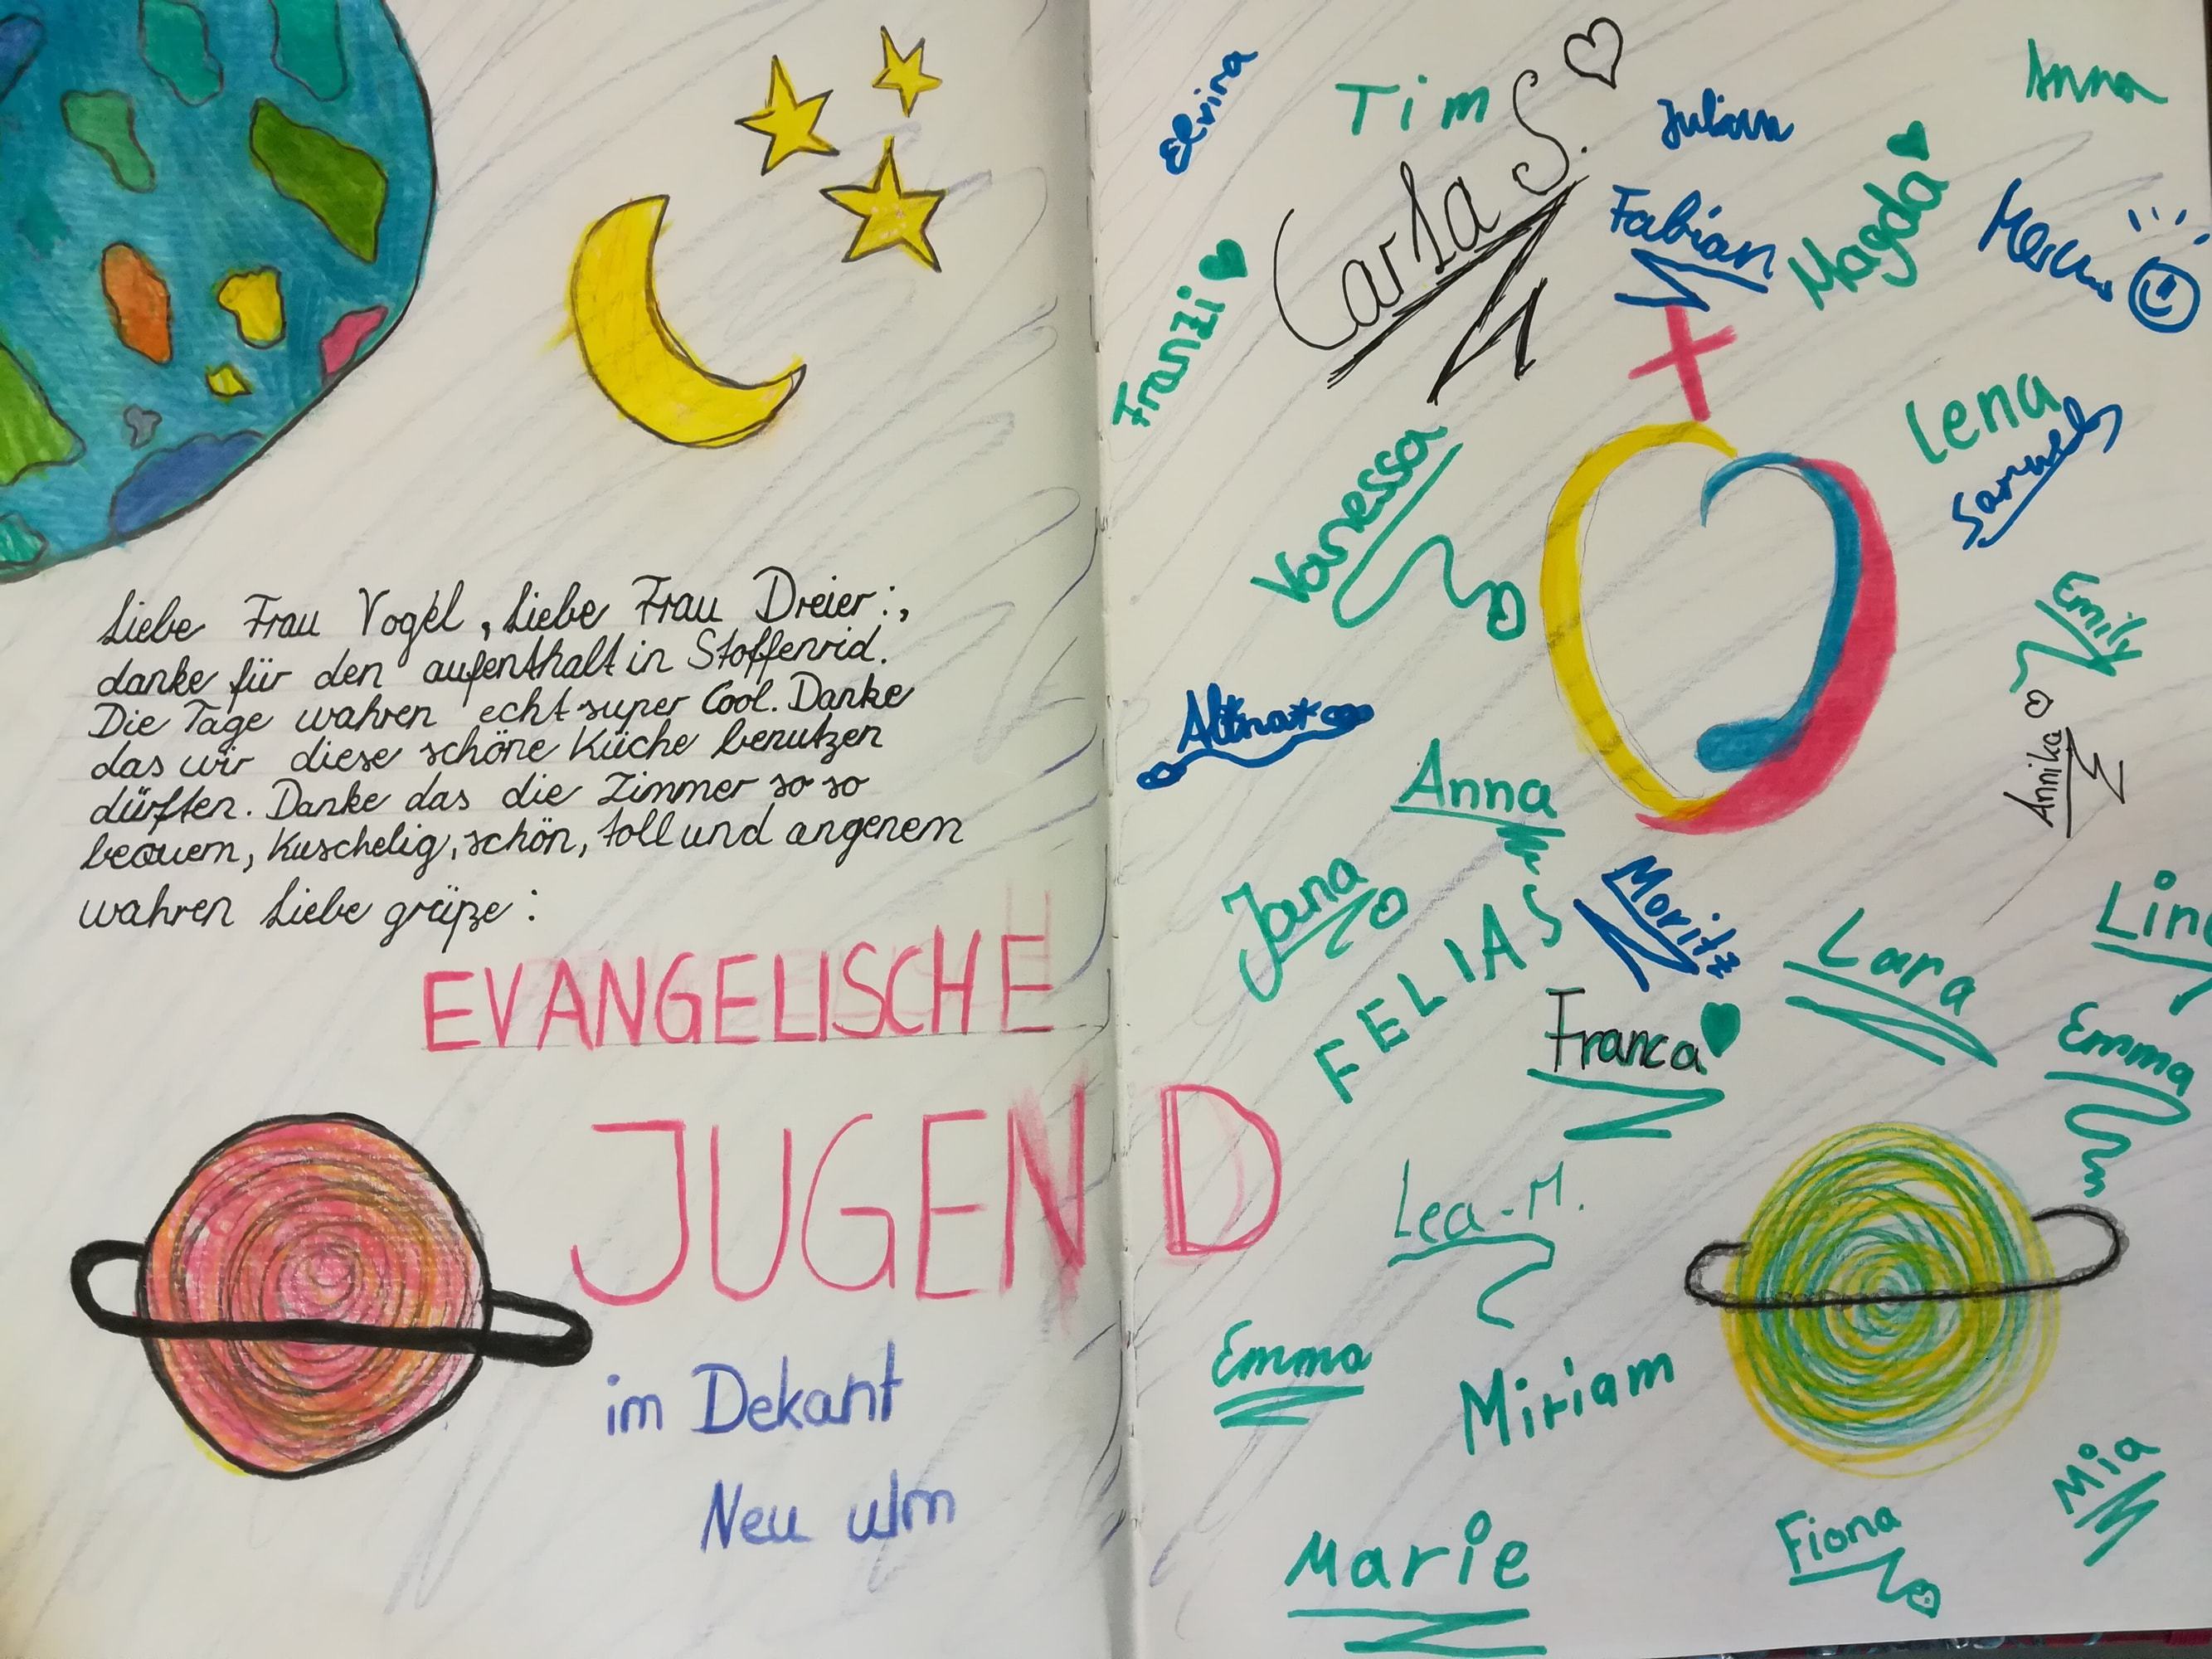 Liebe Frau Vogel, Liebe Frau Dreier:,
danke für den aufenthalt in Stoffenrid.
Die Tage wahren echt super Cool. Danke
das wir diese schöne Küche benutzen
dürften. Danke das die Zimmer so so
bequem, Kuschelig, schön, toll und angenem
wahren Liebe grüße:
EVANGELISCHE
JUGEND
im Dekant
Neu ulm
Elvira
Tim
Carla S.
Julian
Anna
Fabian
Magda
Franzi
Lena
Samuel
Vanessa
Emily
Annika
Anna
Jana
Moritz
FELIAS
Lara
Franca
Emma
Lea-M.
Emma
Miriam
Mia
Fiona
Marie